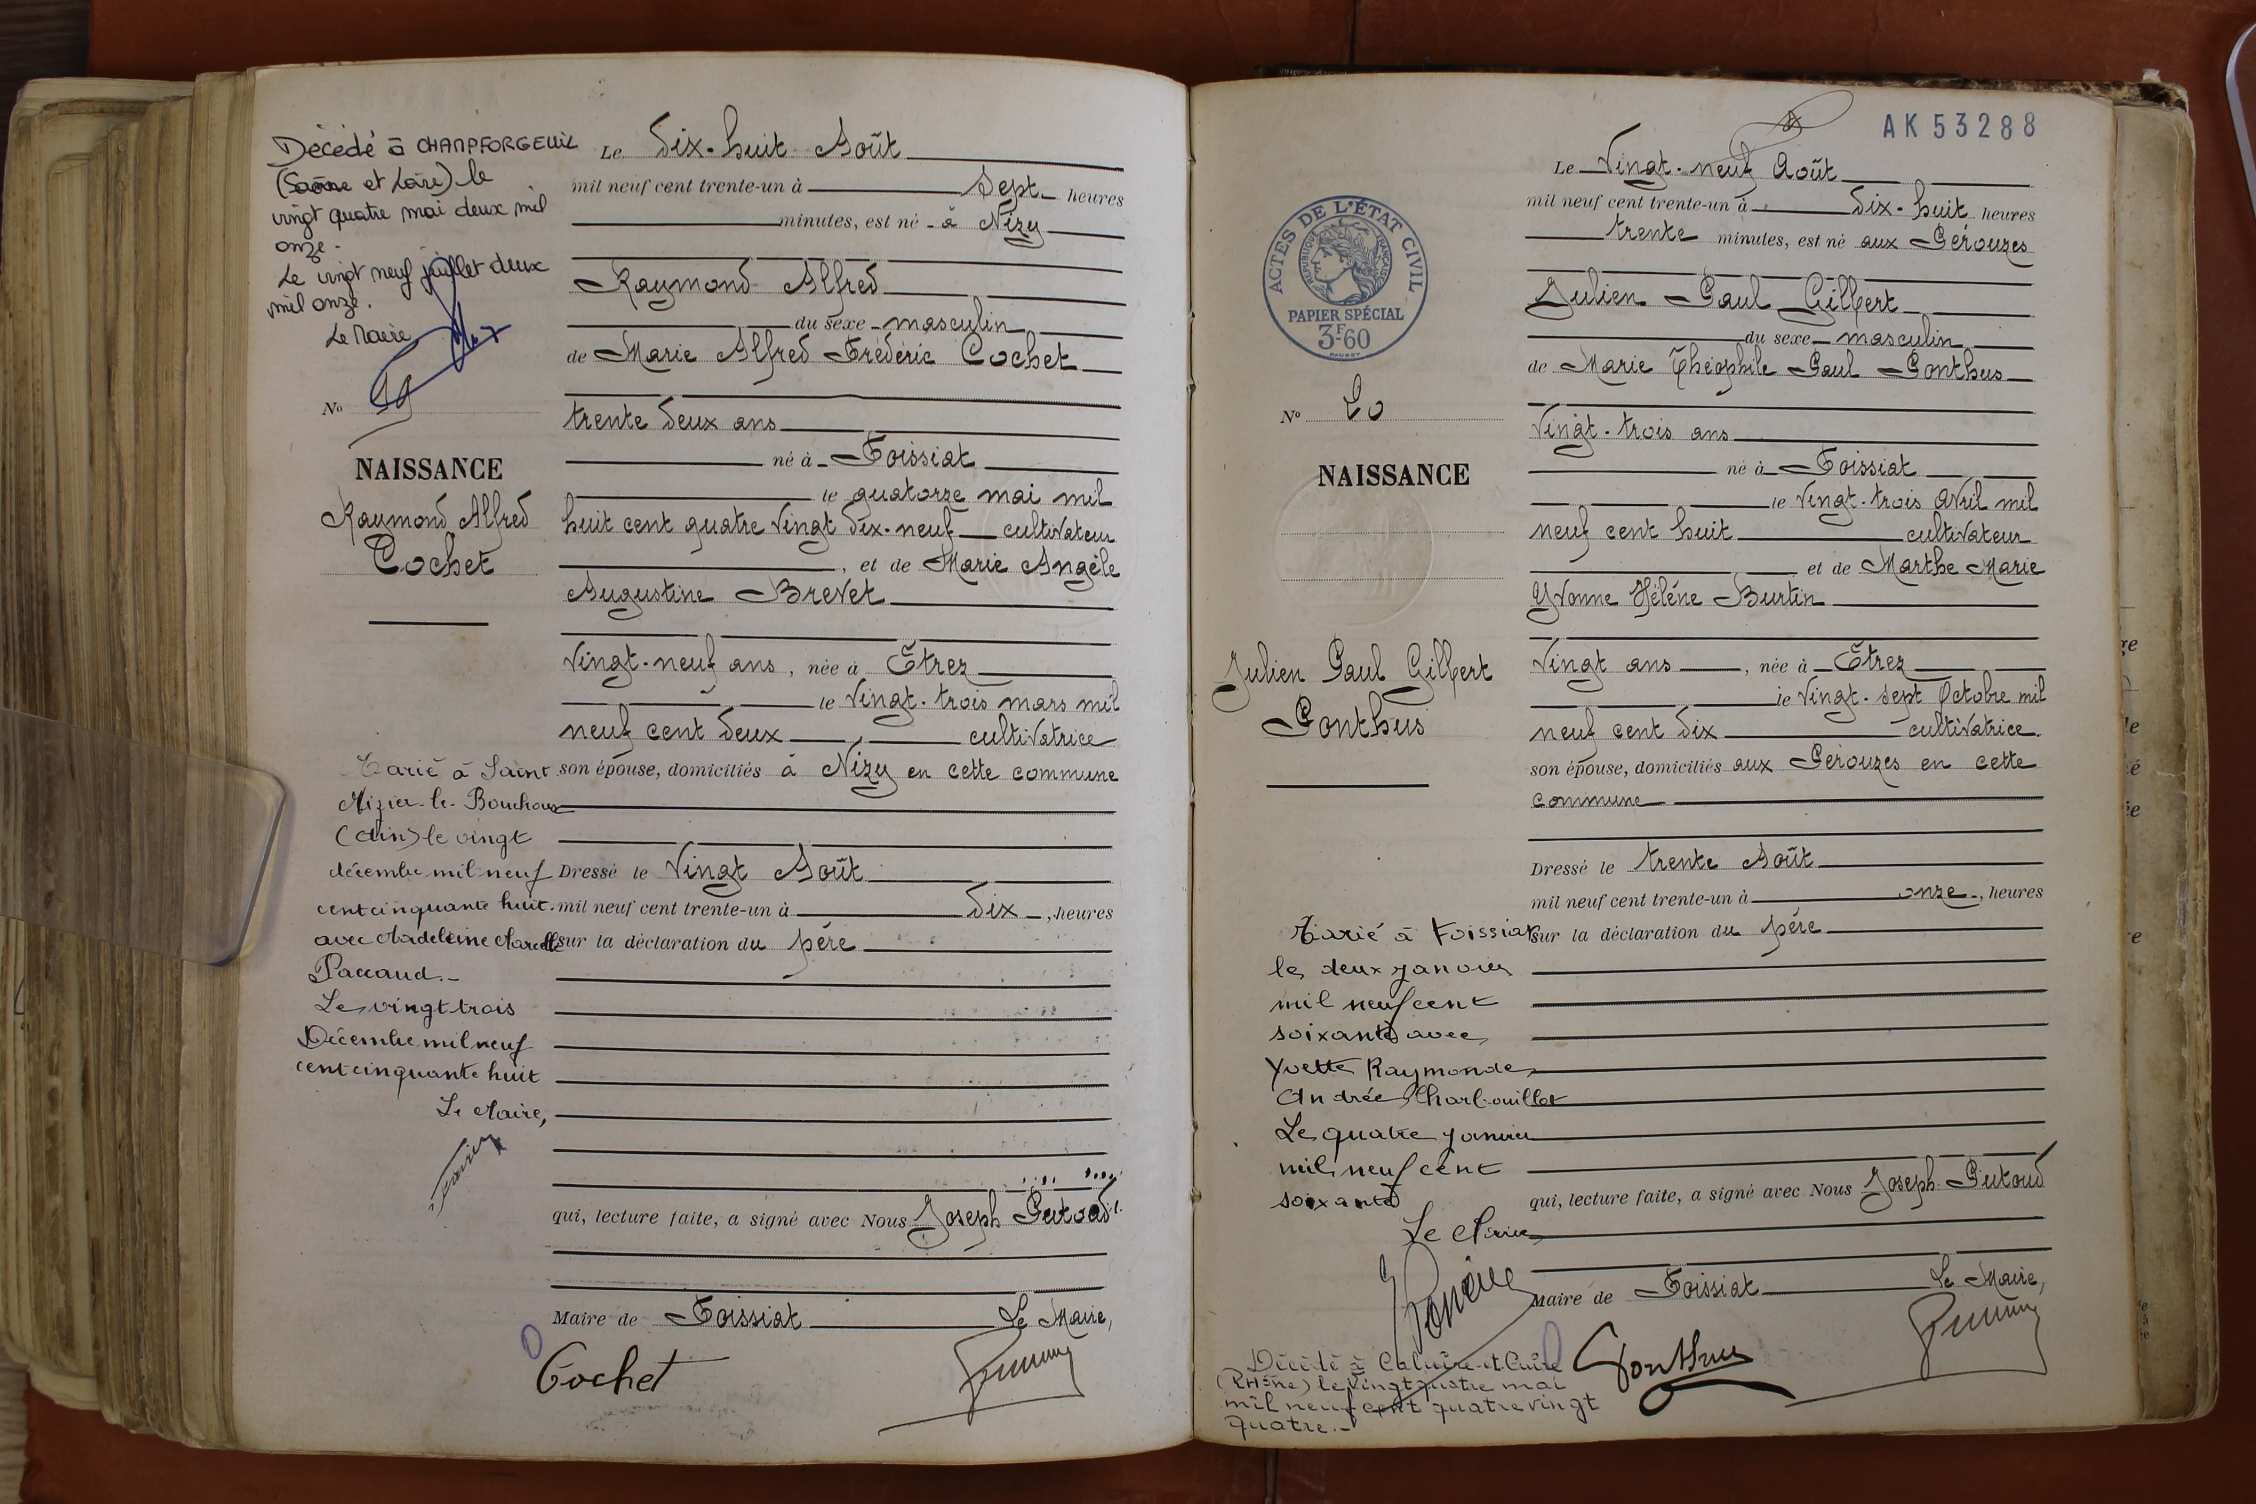 Décédé à CHAMPFORGEUIL
(Saône et Loire) le
vingt quatre mai deux mil
onze.
Le vingt neuf juillet deux
mil onze.
Le Maire
No 19
NAISSANCE
Raymond Alfred
Cochet
Marié à Saint
Nizier-le-Bouchoux
(Ain) le vingt
décembre mil neuf
cent cinquante huit.
avec Madeleine Marcelle
Paccaud.-
Le vingt trois
Décembre mil neuf
cent cinquante huit
Le Maire,
Le dix-huit Août
mil neuf cent trente-un à sept heures
minutes, est né à Nizy
Raymond Alfred
du sexe masculin
de Marie Alfred Frédéric Cochet
trente deux ans
né à Foissiat
le quatorze mai mil
huit cent quatre vingt dix-neuf cultivateur
, et de Marie Angèle
Augustine Brevet
Vingt-neuf ans, née à Étrez
le vingt-trois mars mil
neuf cent deux cultivatrice
son épouse, domiciliés à Nizy en cette commune
Dressé le Vingt Août
mil neuf cent trente-un à dix, heures
sur la déclaration du père
qui, lecture faite, a signé avec Nous Joseph Putoud
Maire de Foissiat Le Maire,
Cochet
AK 53288
ACTES DE L'ÉTAT CIVIL
RÉPUBLIQUE FRANÇAISE
PAPIER SPÉCIAL
3F.60
No 20
NAISSANCE
Julien Paul Gilbert
Ponthus
Marié à Foissiat
le deux janvier
mil neuf cent
soixante avec
Yvette Raymonde
Andrée Charbouillot
Le quatre janvier
mil neuf cent
soixante
Le Maire
Décédé à Caluire-et-Cuire
(RHône) le vingt quatre mai
mil neuf cent quatre vingt
quatre.-
Le Vingt-neuf Août
mil neuf cent trente-un à dix-huit heures
trente minutes, est né aux Pérouzes
Julien Paul Gilbert
du sexe masculin
de Marie Théophile Paul Ponthus
Vingt-trois ans
né à Foissiat
le vingt-trois avril mil
neuf cent huit cultivateur
et de Marthe Marie
Yvonne Hélène Burtin
Vingt ans, née à Étrez
le vingt-sept octobre mil
neuf cent dix cultivatrice
son épouse, domiciliés aux Pérouzes en cette
commune
Dressé le trente Août
mil neuf cent trente-un à onze, heures
sur la déclaration du père
qui, lecture faite, a signé avec Nous Joseph Putoud
Maire de Foissiat Le Maire,
Ponthus